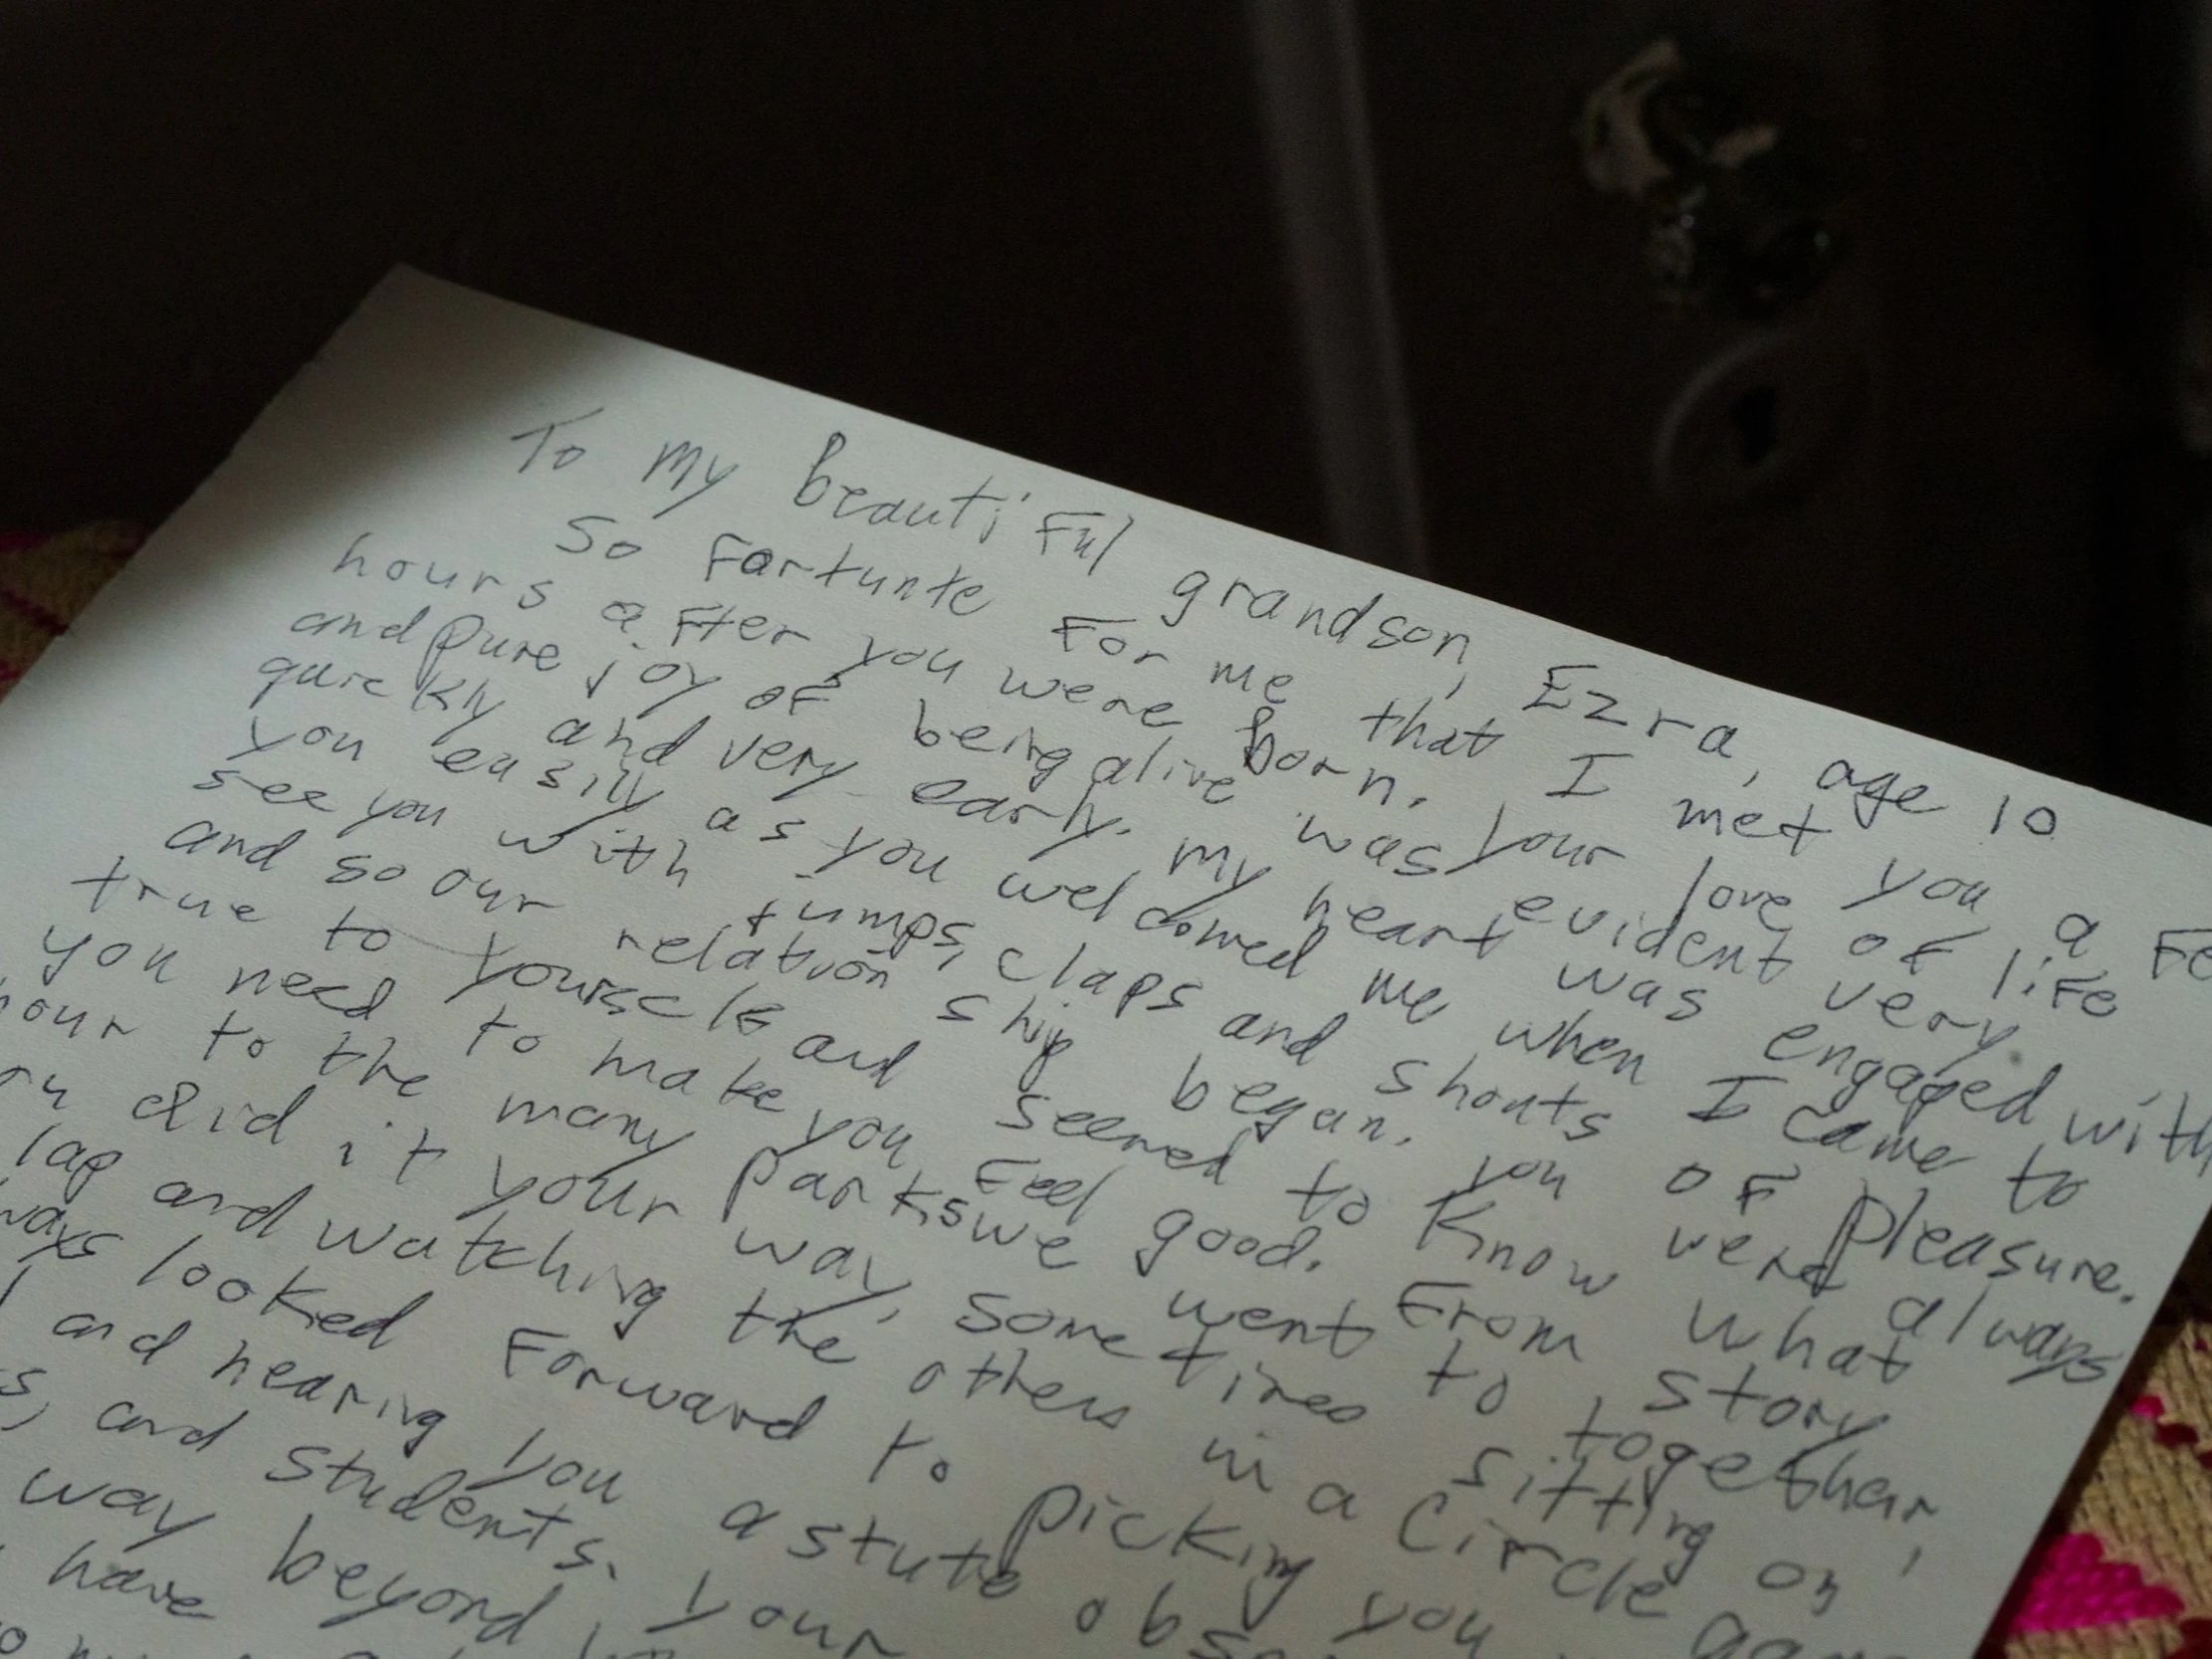 To my beautiful grandson, Ezra, age 10
So Fartunte For me that I met you a Fe
hours after you were born. Your love of life
and pure joy of being alive was evident very
quickly and very early. My heart was engaged with
you easily as you welcomed me when I came to
see you with jumps, claps and shouts of pleasure.
and so our relation ship began. You were always
true to yourself and seemed to know what
you need to make you feel good. From story
hour to the many parks we went to together,
ou did it your way, sometimes sitting on
lap and watching the others in a circle
ways looked forward to picking you
and hearing you astute obse
s, and students. Your
way beyond
have